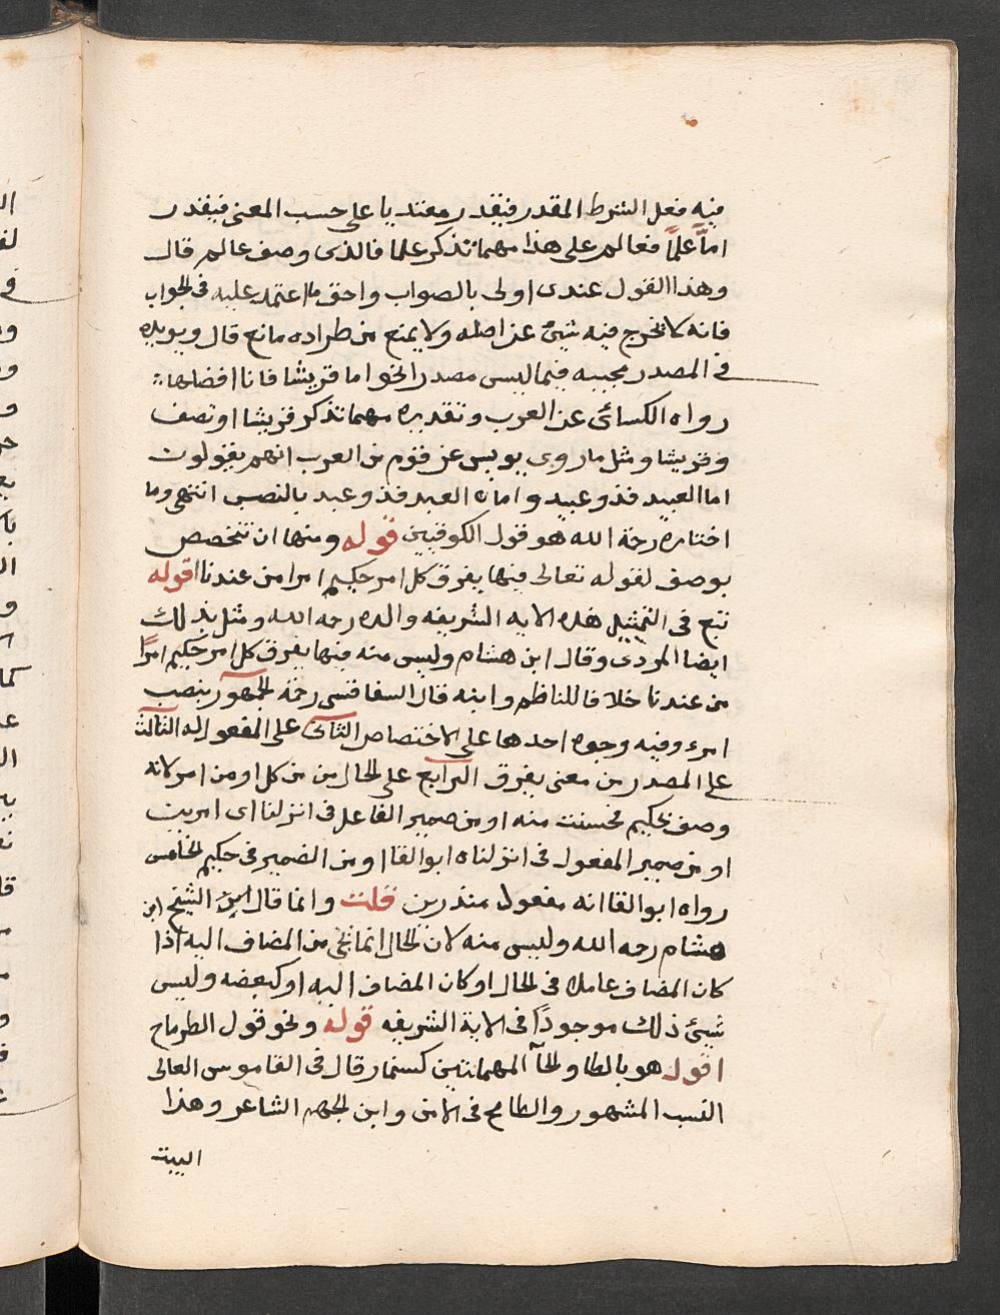 فيه فعل الشرط المقدر فيقدر معتديا على حسب المعنى فيقدر
اما علما فعالم على هذا مهما تذكر علما فالذى وصف عالم قال
وهذا القول عندى اولى بالصواب واحق ما اعتمد عليه فى الجواب
فانه لا يخرج فيه شىء عن اصله ولا يمنع من طراده مانع قال ويويده
فى المصدر مجيبه فيما ليس مصدرا نحو اما قريشا فانا افضلها
رواه الكسائى عن العرب وتقديره مهما تذكر قريشا او تصف
وقريشا ومثل ما روى يويس عن قوم من العرب انهم يقولون
اما العبيد فذو عبيد واما العبد فذو عبد بالنصب انتهى وما
اختاره رحمة الله هو قول الكوفيين قوله ومنها ان تتخصص
بوصف لقوله تعالى فيها يفرق كل امر حكيم امرا من عندنا اقوله
تبع فى التمثيل هذه الايه الشريفه والده رحمه الله ومثل بذلك
ايضا المردى وقال ابن هشام وليس منه فيها يفرق كل امر حكيم امرًا
من عندنا خلافا للناظم وابنه قال السفاقسى رحمة الجمهور بنصب
امرء وفيه وجوه احدها على الاختصاص الثانى على المفعول له الثالث
على المصدر من معنى يفرق الرابع على الحال من من كل او من امر لانه
وصف بحكيم فحسنت منه او من ضمير الفاعل فى انزلنا اى امرين
او من ضمير المفعول فى انزلناه ابو القا او من الضمير فى حكيم الخامس
رواه ابو القا انه مفعول منذرين قلت وانما قال ابن الشيخ ابن
هشام رحمه الله وليس منه لان الحال انما تجئ من المضاف اليه اذا
كان المضاف عاملا فى الحال او كان المضاف اليه او كبعضه وليس
شيئ ذلك موجودًا فى الاية الشريفه قوله ونحو قول الطرماح
اقول هو بالطا والحآ المهملتين كسنمار قال فى القاموس العالى
النسب المشهور والطامح فى الامر وابن الجهم الشاعر وهذا
البيت